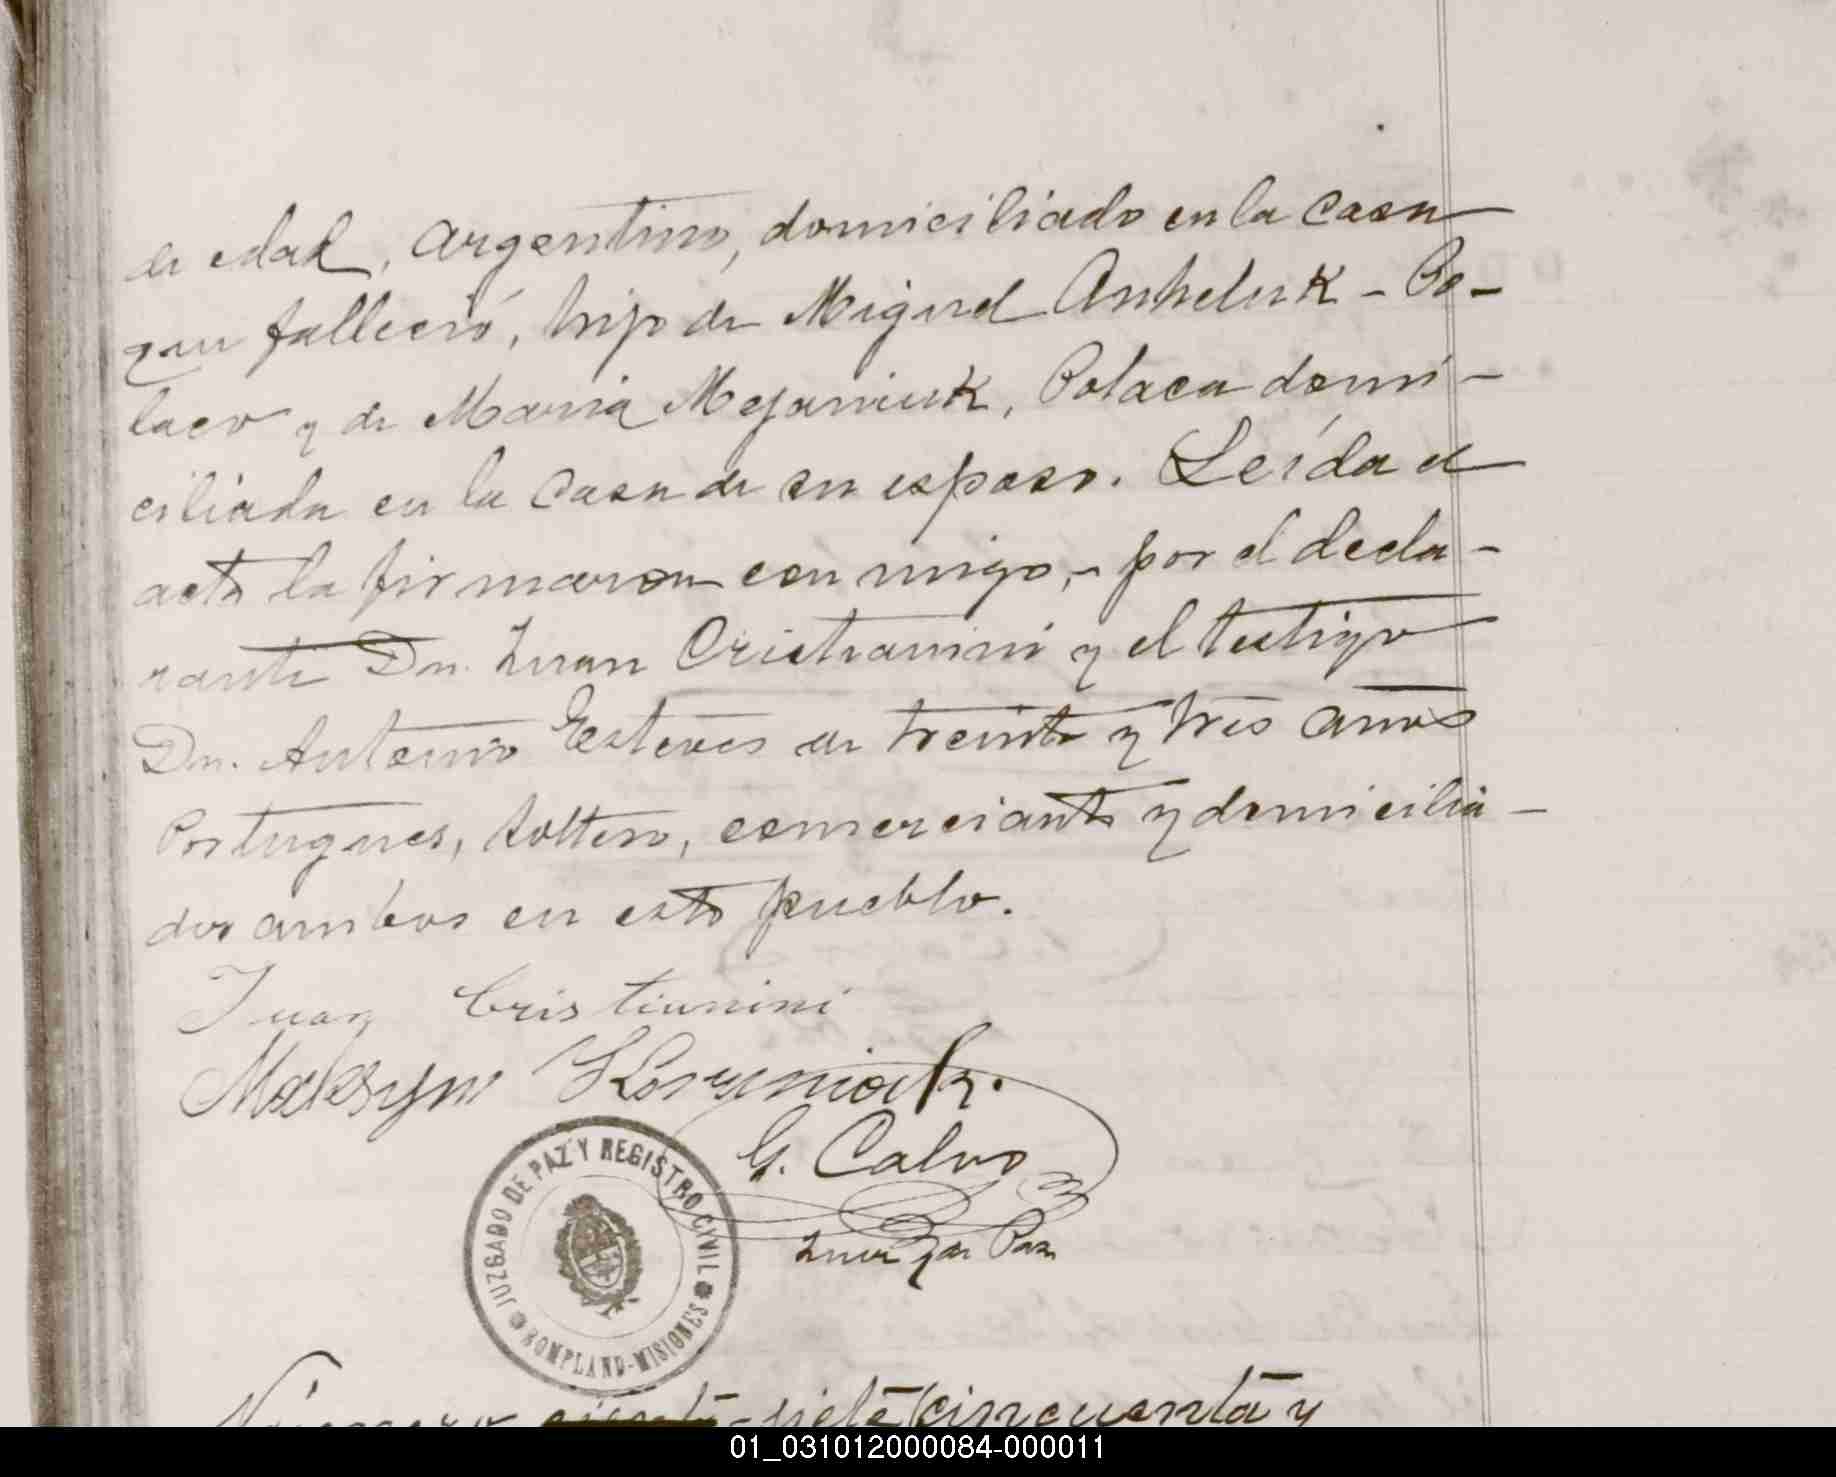 de edad, Argentino, domiciliado en la casa
que falleció, hijo de Miguel Anheluk - Po-
laco y de Maria Mejaniuk, Polaca domi-
ciliada en la casa de su esposo. Leída el
acta la firmaron con migo, - por el decla-
rante Dn. Juan Cristianini y el testigo
Dn. Antonio Esteves de treinta y tres años
Portugues, soltero, comerciante y domicilia-
dos ambos en este pueblo.
Juan Cristianini
Maksym
G. Calvo
Juez de Paz
JUZGADO DE PAZ Y REGISTRO CIVIL
BOMPLAND-MISIONES
Número siete cincuenta y
01_031012000084-000011